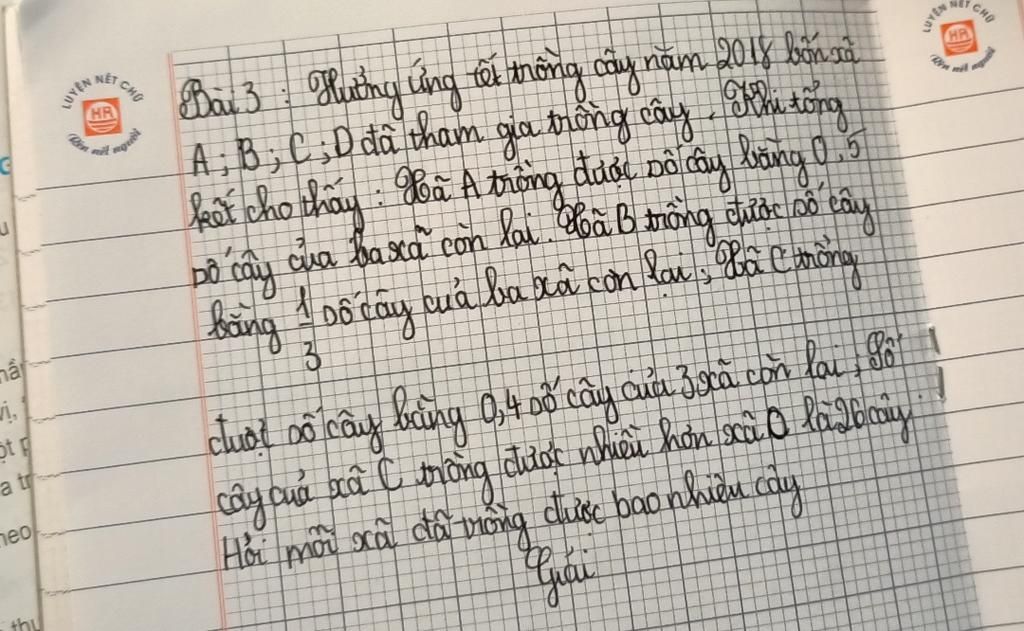 LUYỆN NÉT CHỮ
HR
Rèn nết người
LUYỆN NÉT CHỮ
HR
Rèn nết người
Bài 3 : Hưởng ứng tết trồng cây năm 2018 bốn xã
A; B; C; D đã tham gia trồng cây. Khi tổng
kết cho thấy: Xã A trồng được số cây bằng 0,5
số cây của ba xã còn lại. Xã B trồng được số cây
bằng 1/3 số cây của ba xã còn lại; Xã C trồng
được số cây bằng 0,4 số cây của 3 xã còn lại; Số
cây của xã C trồng được nhiều hơn xã D là 26 cây
Hỏi mỗi xã đã trồng được bao nhiêu cây
Giải